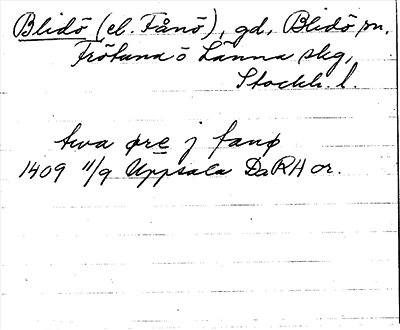 Blidö (el. Fånö), gd, Blidö sn,
Frötuna o Länna skg,
Stockh. l.
twa øre j fanø
1409 11/9 Uppsala DaRH or.